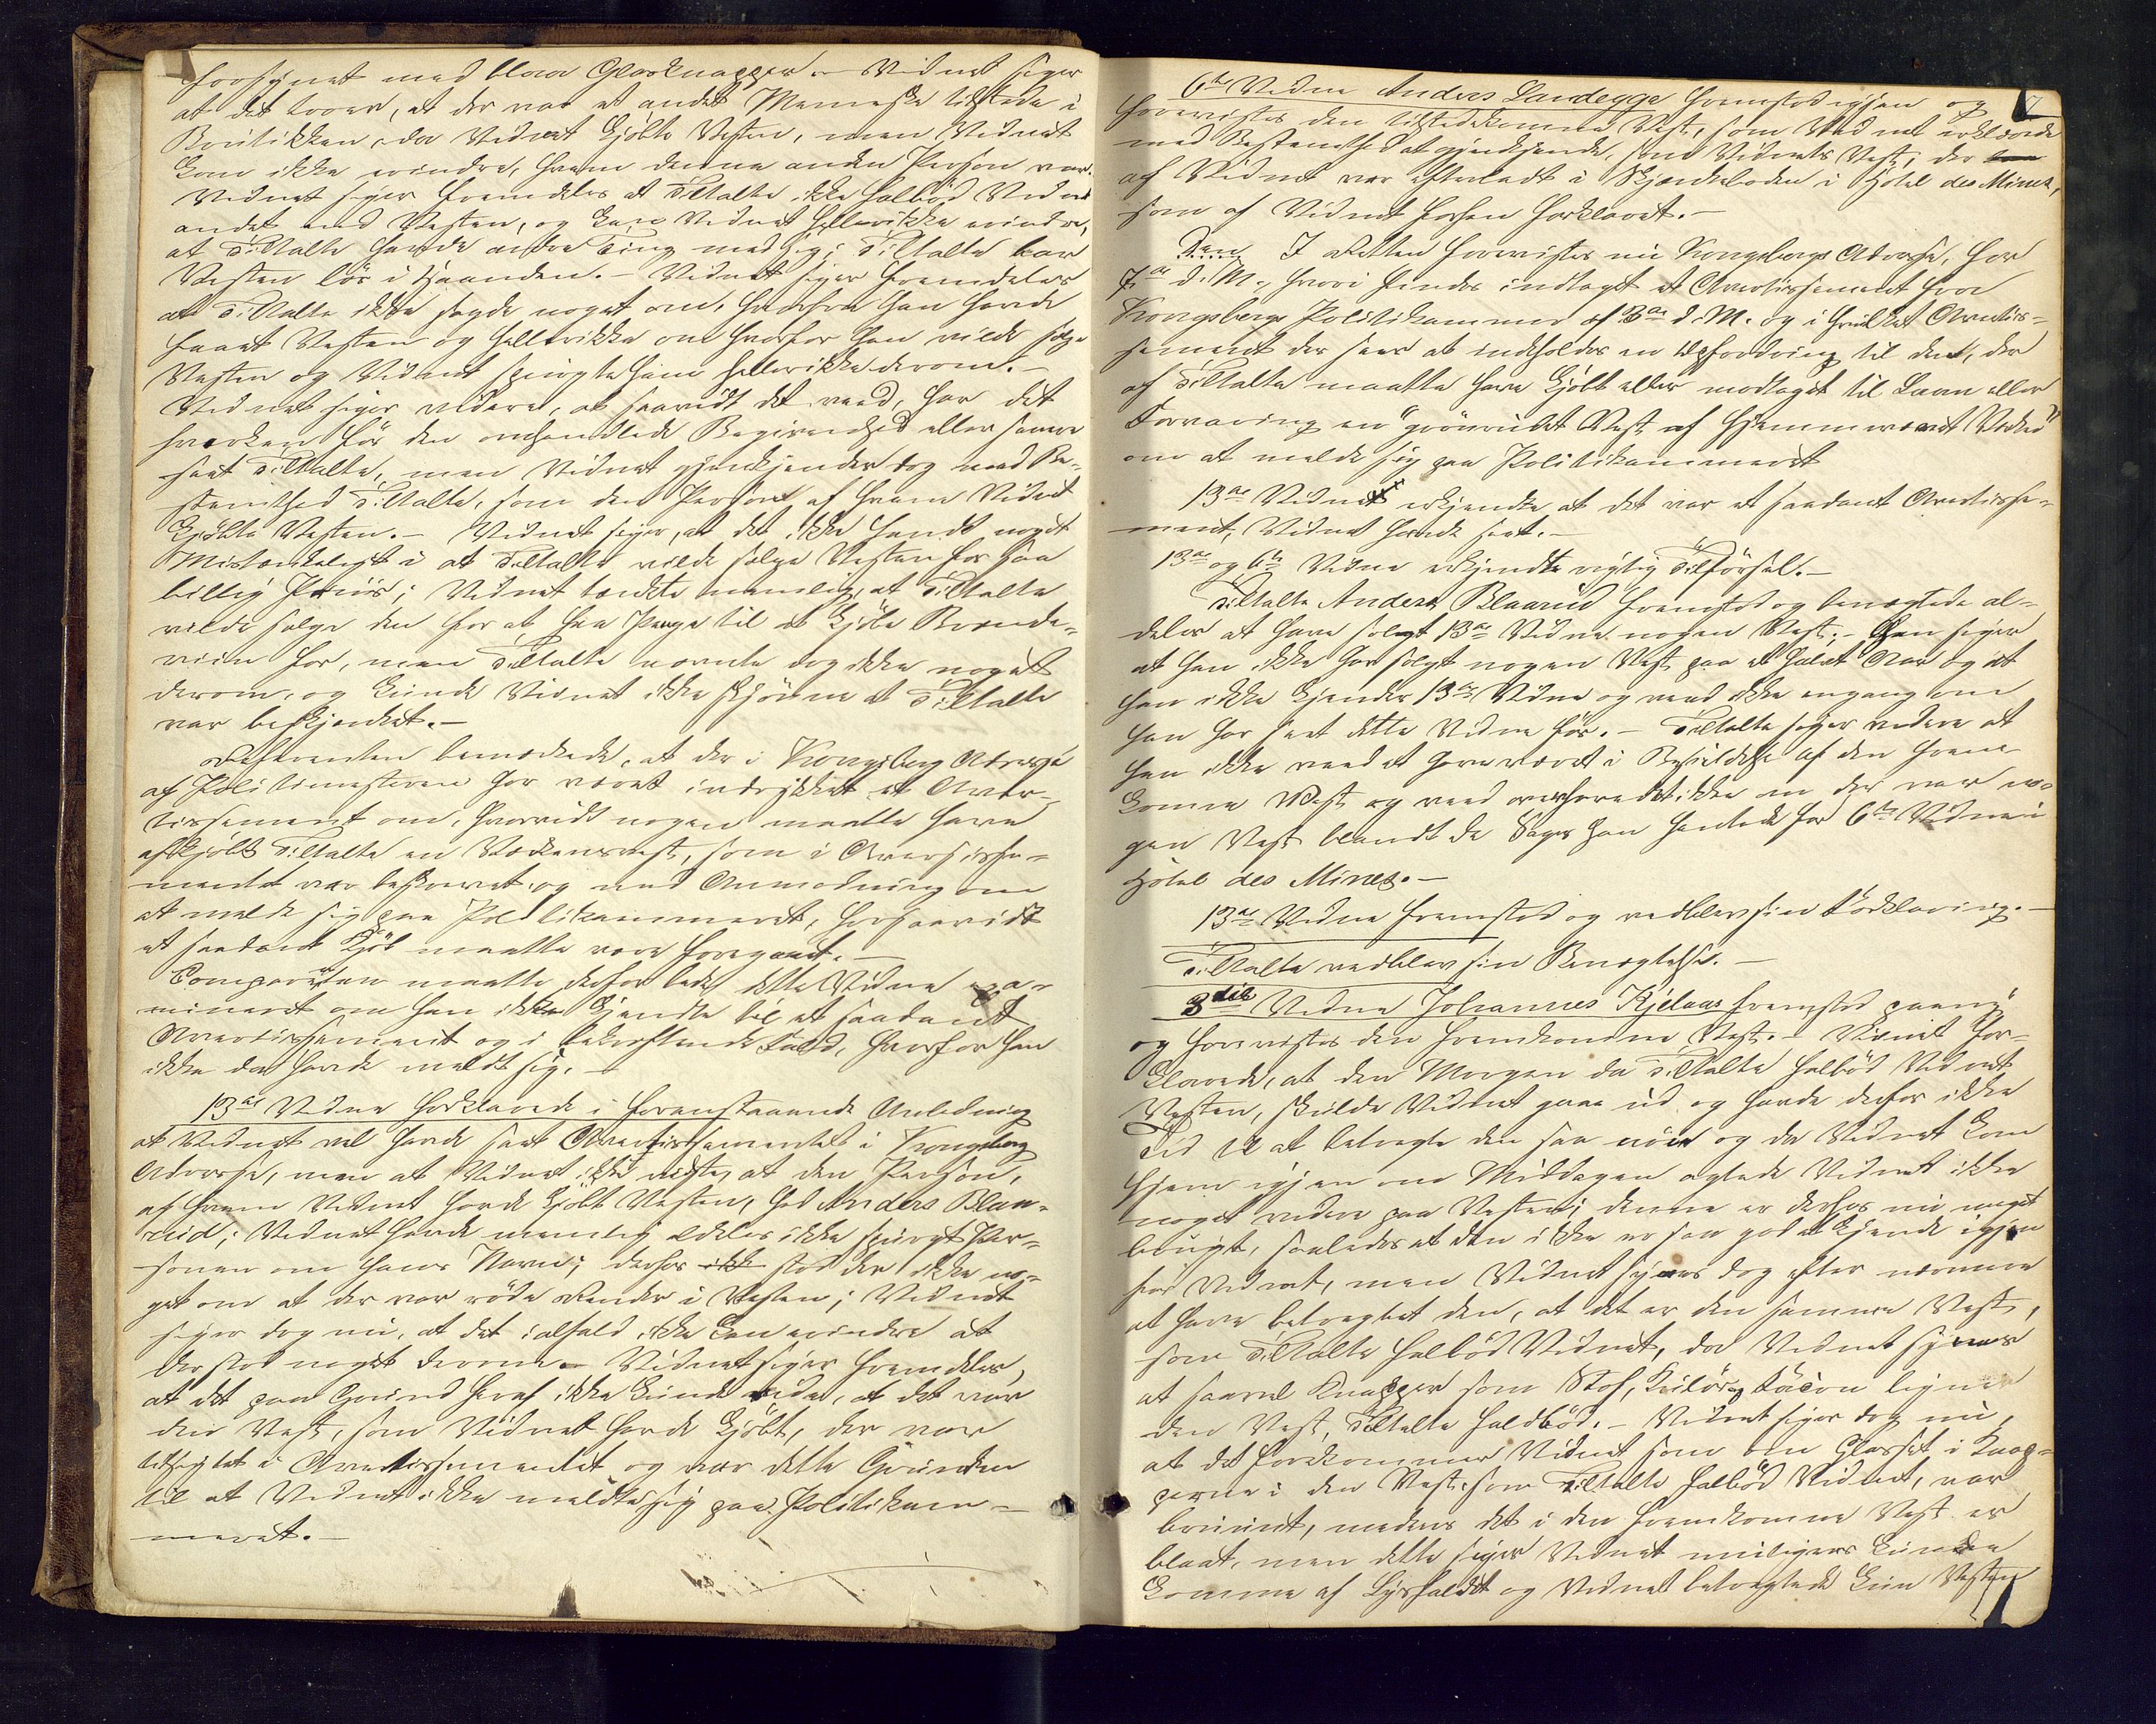 forsynet med blaa Glasknapper. – Vidnet siger
at det troer, at der var et andet Menneske tilstede i
Boutikken, da Vidnet kjöbte Vesten, men Vidnet
kan ikke erindre, hvem denne anden Person var.
Vidnet siger fremdeles at Tiltalte ikke falböd Vidnet
andet end Vesten, og kan Vidnet heller ikke erindre,
at Tiltalte havde andre Ting med sig; Tiltalte bar
Vesten lös i Haanden. – Vidnet siger fremdeles
at Tiltalte ikke sagde noget om, hvorfra han havde
faaet Vesten og heller ikke om hvorfor han vilde sælge
Vesten og Vidnet spurgte ham heller ikke derom. –
Vidnet siger videre, at saavidt det veed, har det
hverken för den omhandlede Begivenhed eller senere
seet Tiltalte, men Vidnet gjenkjender dog med Be-
stemthed Tiltalte, som den Person af hvem Vidnet
kjöbte Vesten. – Vidnet siger, at det ikke fandt noget
Mistænkeligt i at Tiltalte vilde sælge Vesten for saa
billig Priis; Vidnet tænkte nemlig, at Tiltalte
vilde sælge den for at faa Penge til at kjöbe Brænde-
viin for, men Tiltalte nævnte dog ikke noget
derom, og kunde Vidnet ikke skjönne at Tiltalte
var beskjænket. –
Referenten bemærkede, at der i Kongsberg Adresse
af Politimesteren har været indrykket et Aver-
tissement om, hvorvidt nogen maatte have
afkjöbt Tiltalte en Vadmelsvest, som i Avertisse-
mentet var beskrevet, og med Anmodning om
at melde sig paa Politikammeret, forsaavidt
et saadant Kjöb maatte være foregaaet. –
Comparenten maatte derfor bede dette Vidne exa-
mineret om han ikke kjendte til et saadant
Avertissement og i bekræftende Fald, hvorfor han
ikke da havde meldt sig. –
13de Vidne forklarede i foranstaaende Anledning
at Vidnet vel havde seet Avertissementet i Kongsberg
Adresse, men at Vidnet ikke vidste, at den Person,
af hvem Vidnet havde kjöbt Vesten, hed Anders Blaa-
rud; Vidnet havde nemlig aldeles ikke spurgt Per-
sonen om hans Navn; derhos ikke stod der ikke no-
get om at der var röde Render i Vesten; Vidnet
siger dog nu, at det ialfald ikke kan erindre at
der stod noget derom. – Vidnet siger fremdeles,
at det paa Grund heraf ikke kunde vide, at det var
den Vest, som Vidnet havde kjöbt, der var
tilsigtet i Avertissementet og var dette Grunden
til at Vidnet ikke meldte sig paa Politikam-
meret. –
7
6te Vidne Anders Landegge fremstod igjen og
forevistes den tilstedekomne Vest, som Vidnet erklærede
med Bestemthed at gjenkjende, som Vidnets Vest, der
af Vidnet var efterladt i Skjænkeboden i Hotel des Mines,
som af Vidnet forhen forklaret. –
I Retten forevistes nu Kongsbergs Adresse, for
7de d. M., hvori findes indtaget et Avertissement fra
Kongsbergs Politikammer af 3de d. M. og i hvilket Avertis-
sement der sees at indholdes en Opfordring til dem, der
af Tiltalte maatte have kjöbt eller modtaget til Laan eller
Forvaring en "grönrudet Vest af hjemmevævet Verken"
om at melde sig paa Politikammeret
13de Vidne erkjendte at det var et saadant Avertisse-
ment, Vidnet havde seet. –
13de og 6te Vidne erkjendte rigtig Tilförsel. –
Tiltalte Anders Blaarud fremstod og benægtede al-
deles at have solgt 13de Vidne nogen Vest; – Han siger
at han ikke har solgt nogen Vest paa et halvt Aar og at
han ikke kjender 13de Vidne og veed ikke engang om
han har seet dette Vidne för. – Tiltalte siger videre at
han ikke veed at have været i Besiddelse af den frem-
komne Vest og veed overhovedet ikke om der var no-
gen Vest blandt de Sager han hentede for 6te Vidne i
Hotel des Mines. –
13de Vidne fremstod og vedblev sin Forklaring. –
Tiltalte vedblev sin Benægtelse. –
3die Vidne Johannes Kjelaas fremstod paany
og forevistes den fremkomne Vest. – Vidnet for-
klarede, at den Morgen da Tiltalte falböd Vidnet
Vesten, skulde Vidnet gaae ud og havde derfor ikke
Tid til at betragte den saa nöie og da Vidnet kom
hjem igjen om Middagen agtede Vidnet ikke
noget videre paa Vesten; denne er derhos nu meget
brugt, saaledes at den ikke er saa god at kjende igjen
for Vidnet, men Vidnet synes dog efter nærmere
at have betragtet den, at det er den samme Vest,
som Tiltalte falböd Vidnet, da Vidnet synes
at saavel Knapper som Stof, Kulör og Façon ligner
den Vest, Tiltalte falböd. – Vidnet siger dog nu,
at det forekommer Vidnet som om Glasset i Knap-
perne i den Vest, som Tiltalte falböd Vidnet, var
bruunt, medens det i den fremkomne Vest er
blaat, men dette siger Vidnet muligens kunde
komme af Lysfaldet og Vidnet betragtede kun Vesten